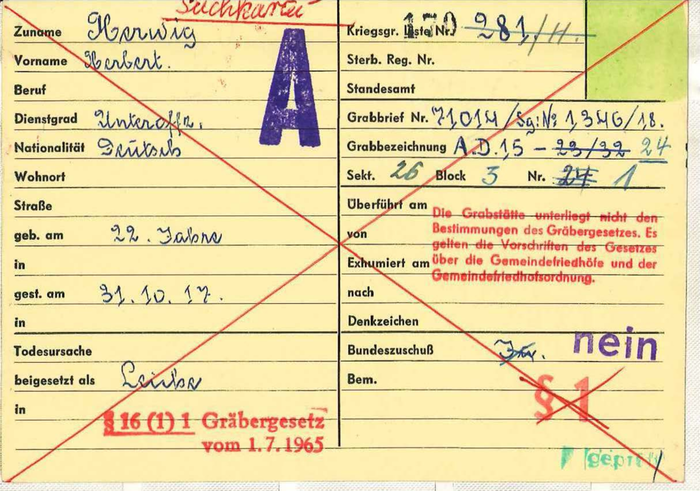 Suchkartei
Zuname Herwig
Vorname Herbert.
Beruf
Dienstgrad Unteroffz.
Nationalität Deutsch
Wohnort
Straße
geb. am 22. Jahre
in
gest. am 31.10.17.
in
Todesursache
beigesetzt als Leiche
in
§ 16 (1) 1 Gräbergesetz
vom 1.7.1965
A
Kriegsgr. Liste Nr. 170 281/11.
Sterb. Reg. Nr.
Standesamt
Grabbrief Nr. 71014/Sg: No 1346/18.
Grabbezeichnung A.D.15 - 23/32 24
Sekt. 26 Block 3 Nr. 24 1
Überführt am
von
Exhumiert am
nach
Denkzeichen
Bundeszuschuß nein
Bem.
Die Grabstätte unterliegt nicht den
Bestimmungen des Gräbergesetzes. Es
gelten die Vorschriften des Gesetzes
über die Gemeindefriedhöfe und der
Gemeindefriedhofsordnung.
§ 1